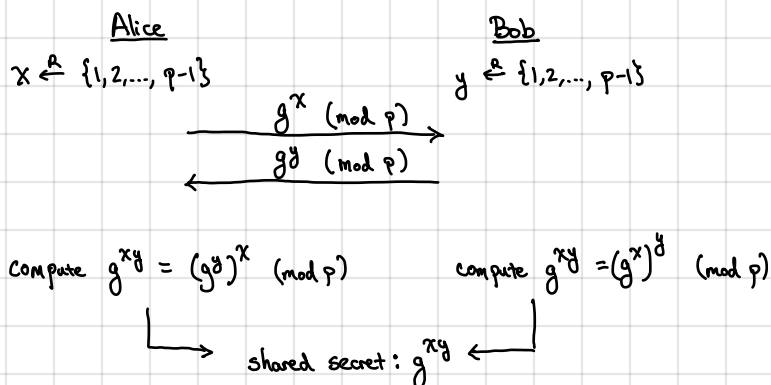 Alice Bob
x ←ᴿ {1,2,..., p-1} y ←ᴿ {1,2,..., p-1}
gˣ (mod p)
gʸ (mod p)
compute gˣʸ = (gʸ)ˣ (mod p) compute gˣʸ = (gˣ)ʸ (mod p)
shared secret: gˣʸ